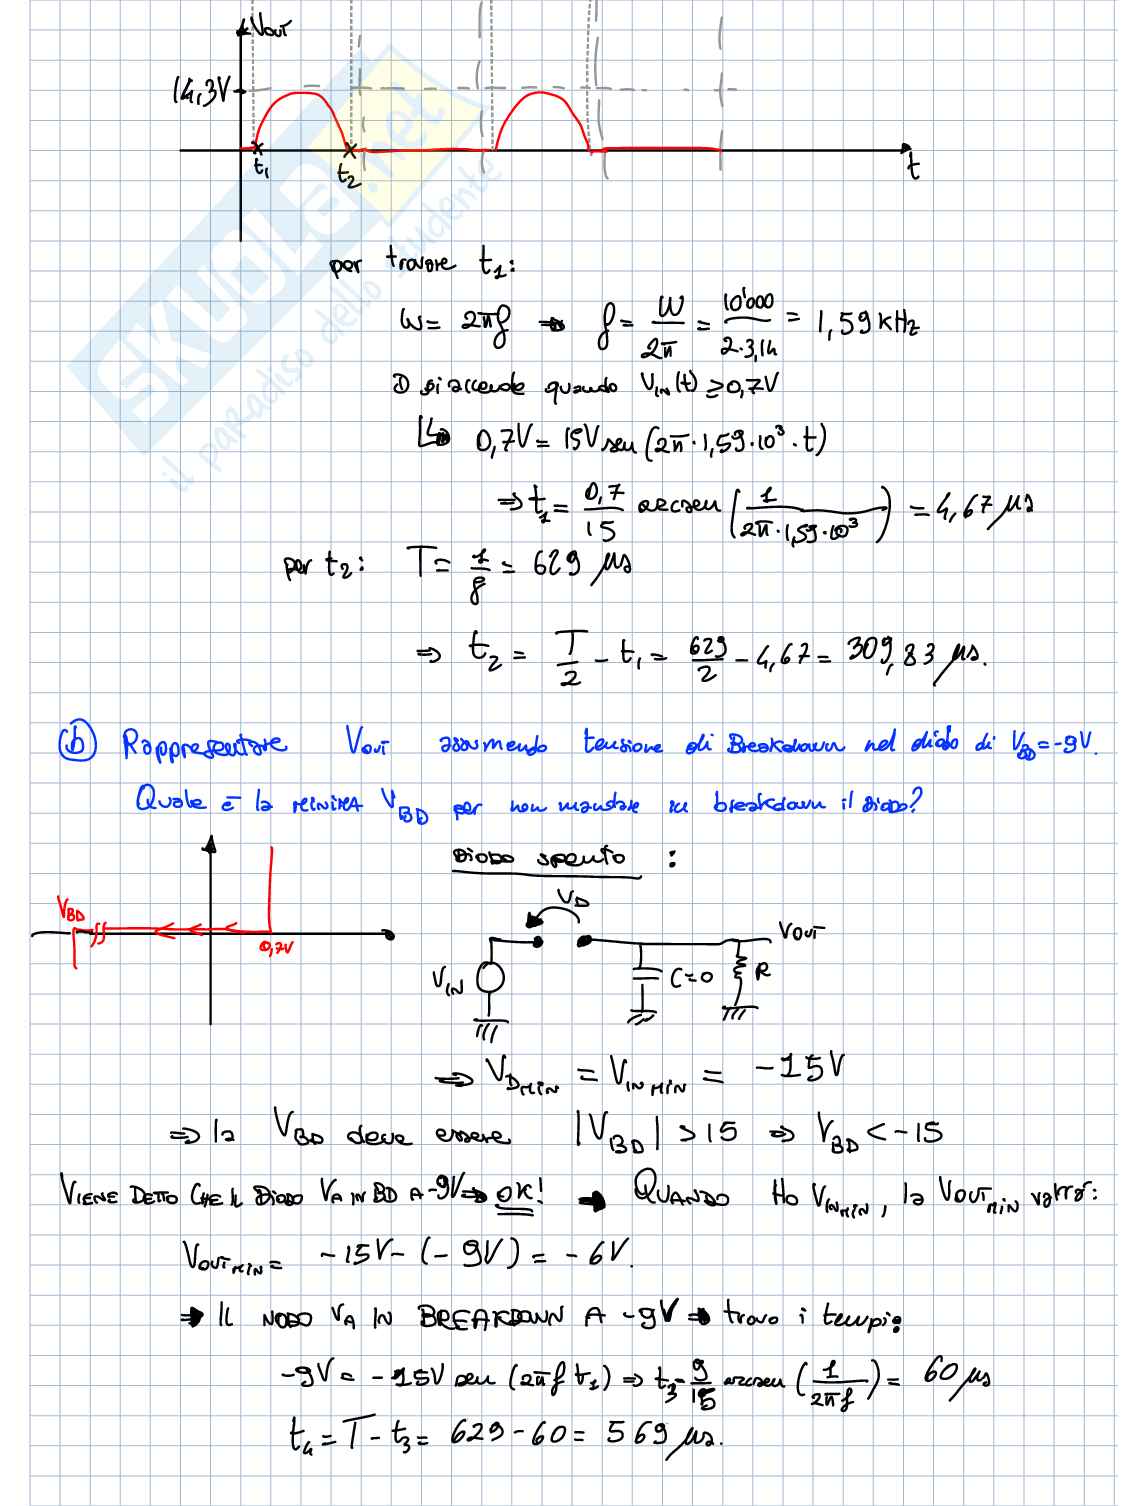 Vout
14,3V
t₁ t₂ t
per trovare t₁:
ω = 2πf ⇒ f = ω/2π = 10'000/2·3,14 = 1,59 kHz
D si accende quando V_IN(t) ≥ 0,7V
↳ 0,7V = 15V sen (2π·1,59·10³·t)
⇒ t₁ = 0,7/15 arcsen (1/2π·1,59·10³) = 4,67 μs
per t₂: T = 1/f = 629 μs
⇒ t₂ = T/2 - t₁ = 629/2 - 4,67 = 309,83 μs.
(b) Rappresentare Vout assumendo tensione di Breakdown nel diodo di V_BD = -9V.
Quale è la minima V_BD per non mandare in breakdown il diodo?
DIODO spento :
V_BD
0,7V
V_D
V_IN
C=0
R
Vout
⇒ V_D MIN = V_IN MIN = -15V
⇒ la V_BD deve essere |V_BD| > 15 ⇒ V_BD < -15
VIENE DETTO CHE IL DIODO VA IN BD A -9V ⇒ OK! → QUANDO HO V_IN MIN, la VOUT MIN varrà:
VOUT MIN = -15V - (-9V) = -6V.
⇒ IL NODO VA IN BREAKDOWN A -9V ⇒ trovo i tempi:
-9V = -15V sen (2πf t₁) ⇒ t₃ = 9/15 arcsen (1/2πf) = 60 μs
t₄ = T - t₃ = 629 - 60 = 569 μs.
SKUOLA.net
il paradiso dello studente